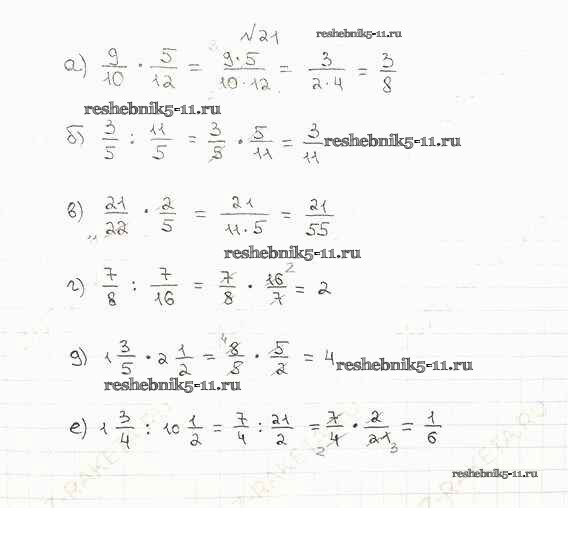 №21 reshebnik5-11.ru
а) 9/10 · 5/12 = 9·5/10·12 = 3/2·4 = 3/8
reshebnik5-11.ru
б) 3/5 : 11/5 = 3/5 · 5/11 = 3/11 reshebnik5-11.ru
в) 21/22 · 2/5 = 21/11·5 = 21/55
reshebnik5-11.ru
г) 7/8 : 7/16 = 7/8 · 16/7 2 = 2
д) 1 3/5 · 2 1/2 = 4 8/5 · 5/2 = 4 reshebnik5-11.ru
reshebnik5-11.ru
е) 1 3/4 : 10 1/2 = 7/4 : 21/2 = 7/4 2 · 2/21 3 = 1/6
reshebnik5-11.ru